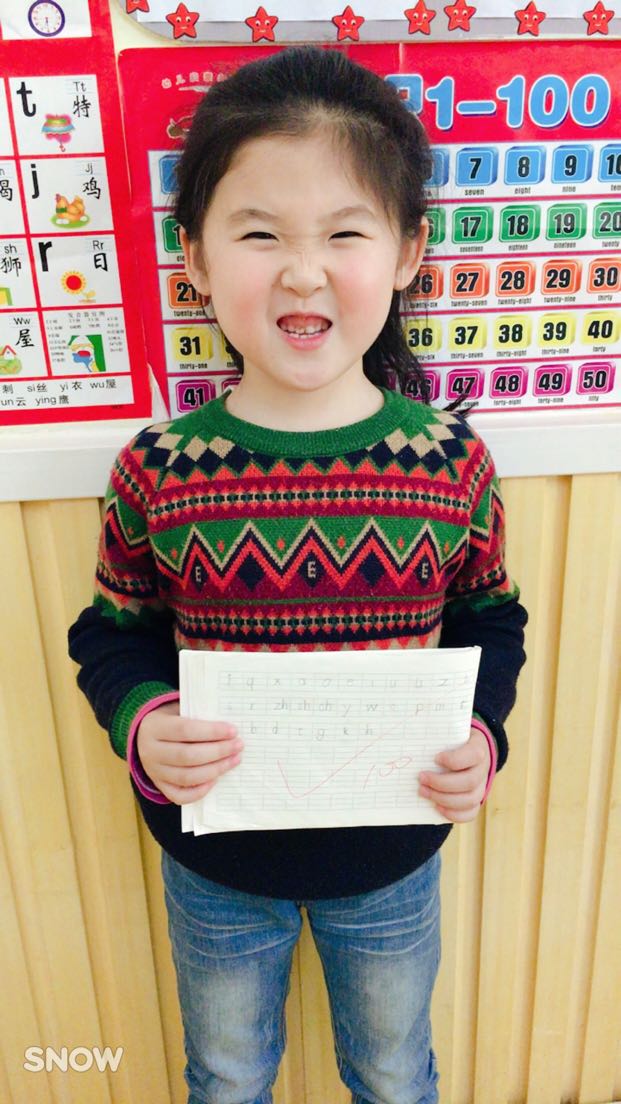 t
Tt
特
j
Jj
鸡
sh
狮
r
Rr
日
Ww
屋
复合音节分图
刺 si丝 yi衣 wu屋
un云 ying鹰
1-100
7 8 9 10
seven eight nine ten
17 18 19 20
seventeen eighteen nineteen twenty
21 26 27 28 29 30
twenty-six twenty-seven twenty-eight twenty-nine thirty
31 36 37 38 39 40
thirty-one thirty-six thirty-seven thirty-eight thirty-nine forty
41 46 47 48 49 50
forty-seven forty-eight forty-nine fifty
E E E
j q x a o e i u ü z
r zh sh ch y w p m f
b d t g k h
100
SNOW